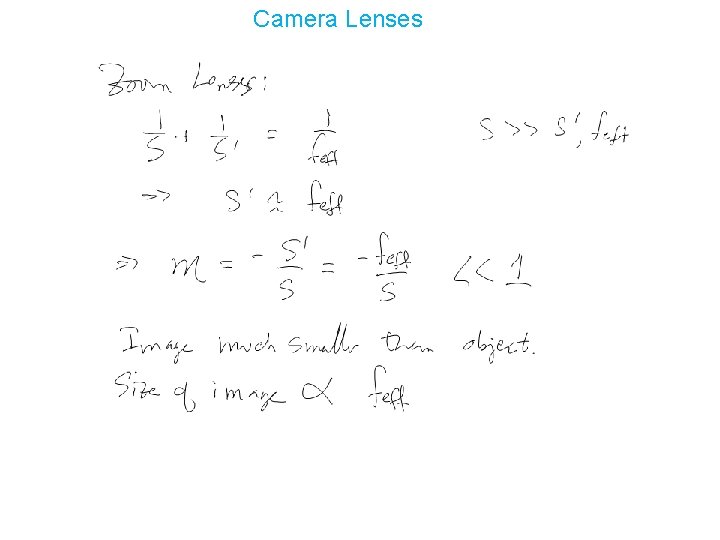 Camera Lenses
Zoom Lenses:
1/S + 1/S' = 1/feff    S >> S', feff
=> S' ≈ feff
=> m = - S'/S = - feff/S << 1
Image much smaller than object.
Size of image ∝ feff